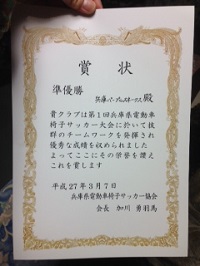 賞状
準優勝
兵庫パープルスネークス 殿
貴クラブは第1回兵庫県電動車
椅子サッカー大会に於いて抜
群のチームワークを発揮され
優秀な成績を収められました
よってここにその栄誉を讃え
これを賞します
平成27年3月7日
兵庫県電動車椅子サッカー協会
会長 加川 勇羽馬